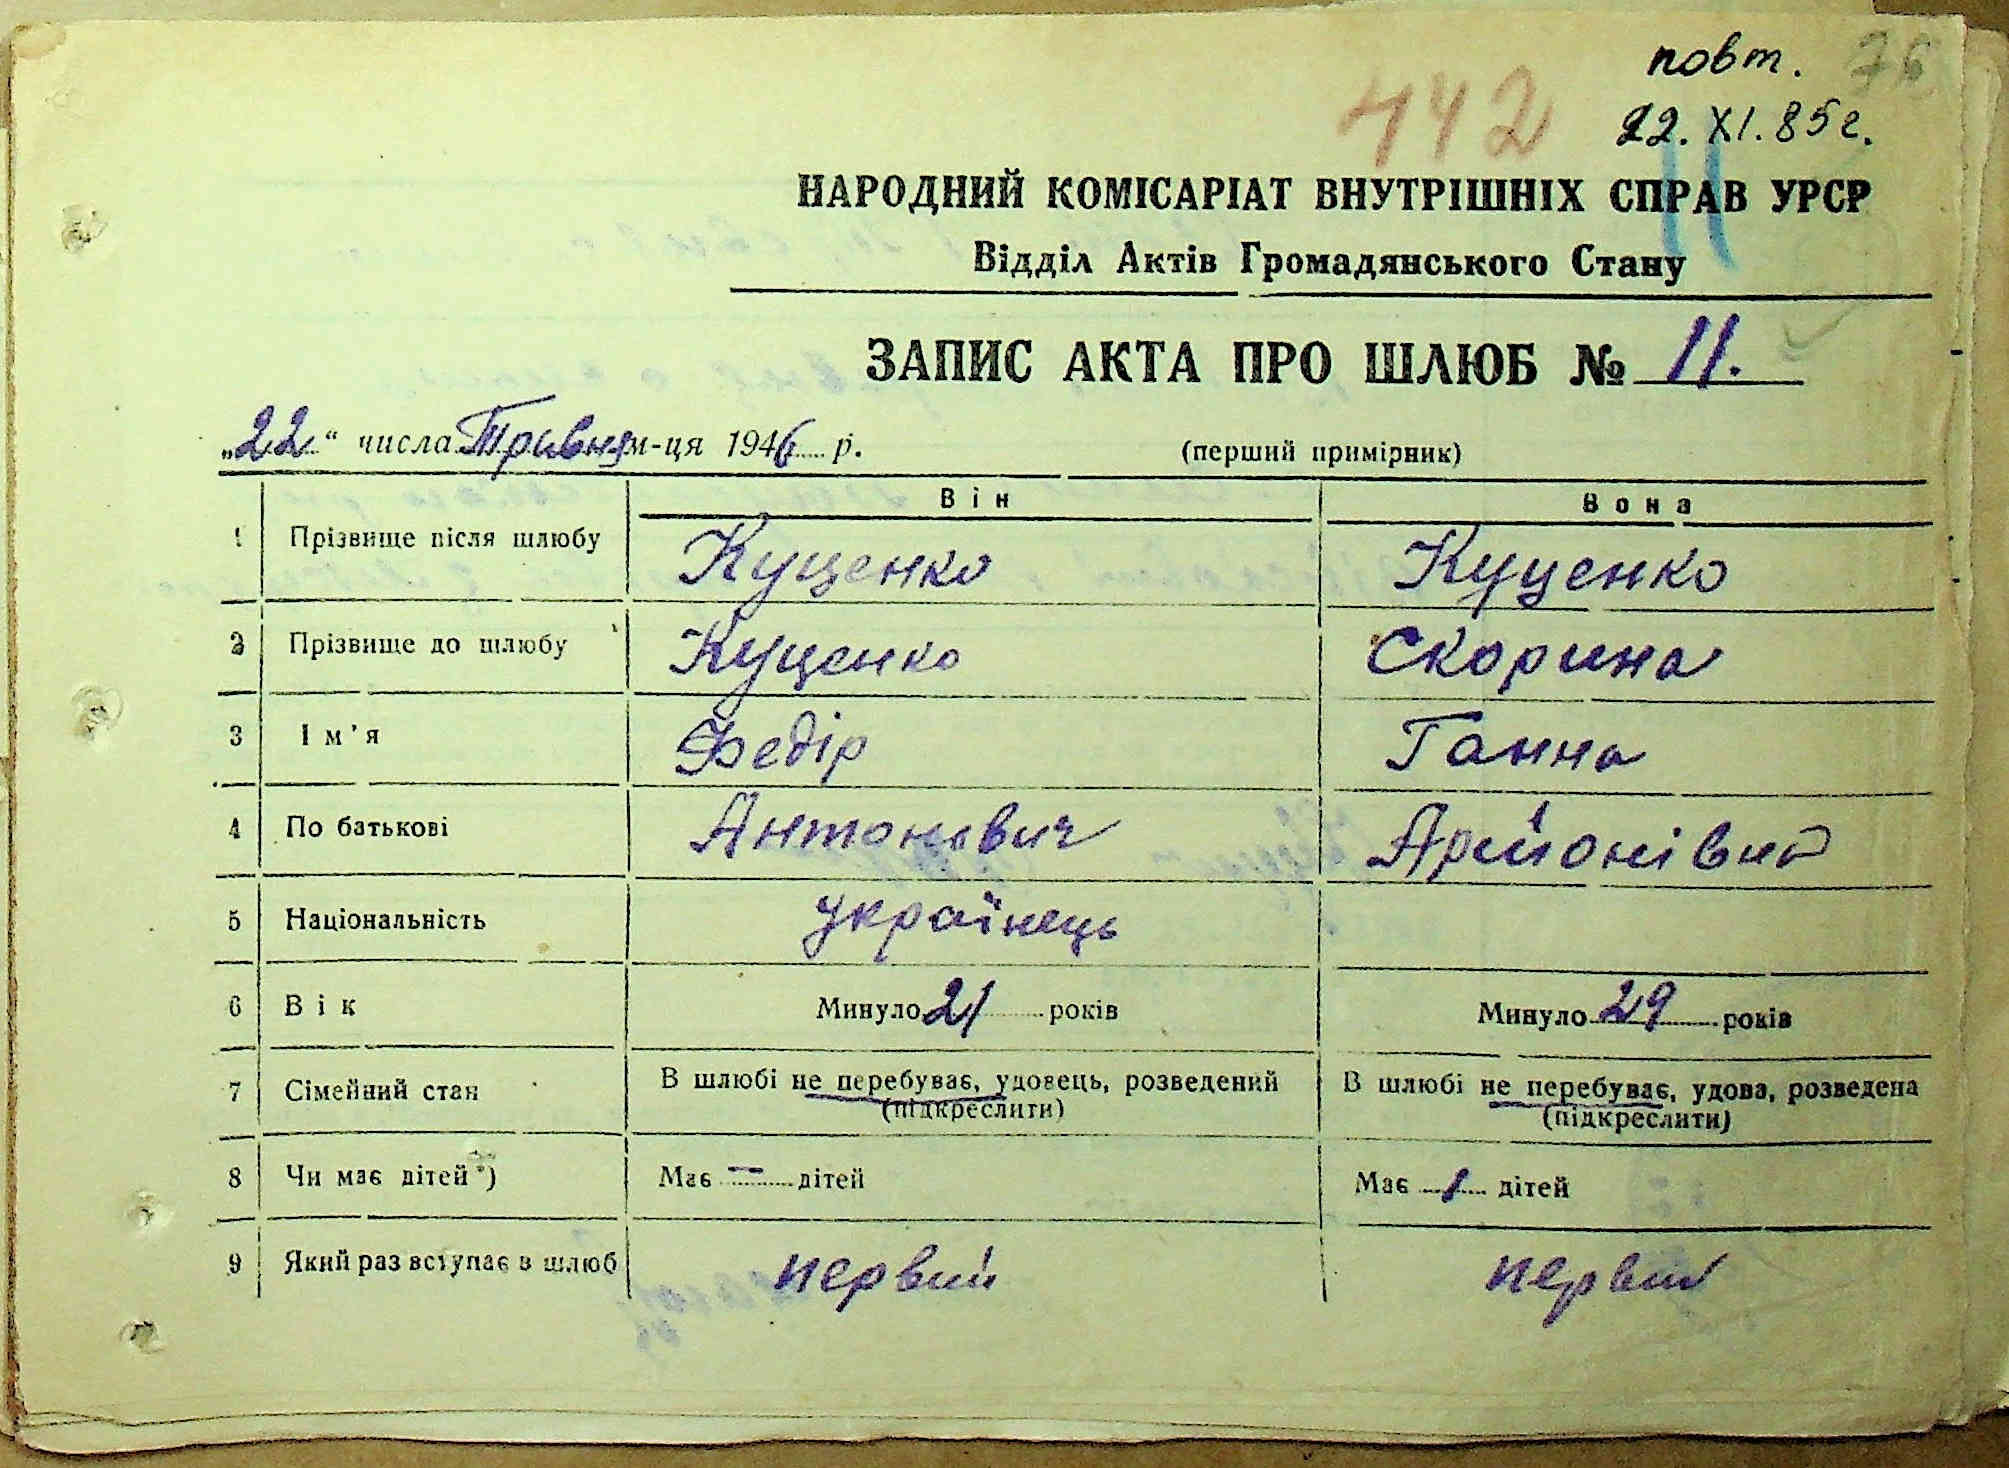 повт. 76
442
22. XI. 85 г.
11
НАРОДНИЙ КОМІСАРІАТ ВНУТРІШНІХ СПРАВ УРСР
Відділ Актів Громадянського Стану
ЗАПИС АКТА ПРО ШЛЮБ № 11.
„22“ числа Травня м-ця 1946 р. (перший примірник)
Він Вона
1 Прізвище після шлюбу Куценко Куценко
2 Прізвище до шлюбу Куценко Скорина
3 Ім'я Федір Ганна
4 По батькові Антонович
5 Національність українець
6 Вік Минуло 21 років Минуло 29 років
7 Сімейний стан В шлюбі не перебуває, удовець, розведений В шлюбі не перебуває, удова, розведена
(підкреслити) (підкреслити)
8 Чи має дітей*) Має — дітей Має 1 дітей
9 Який раз вступає в шлюб первий первий